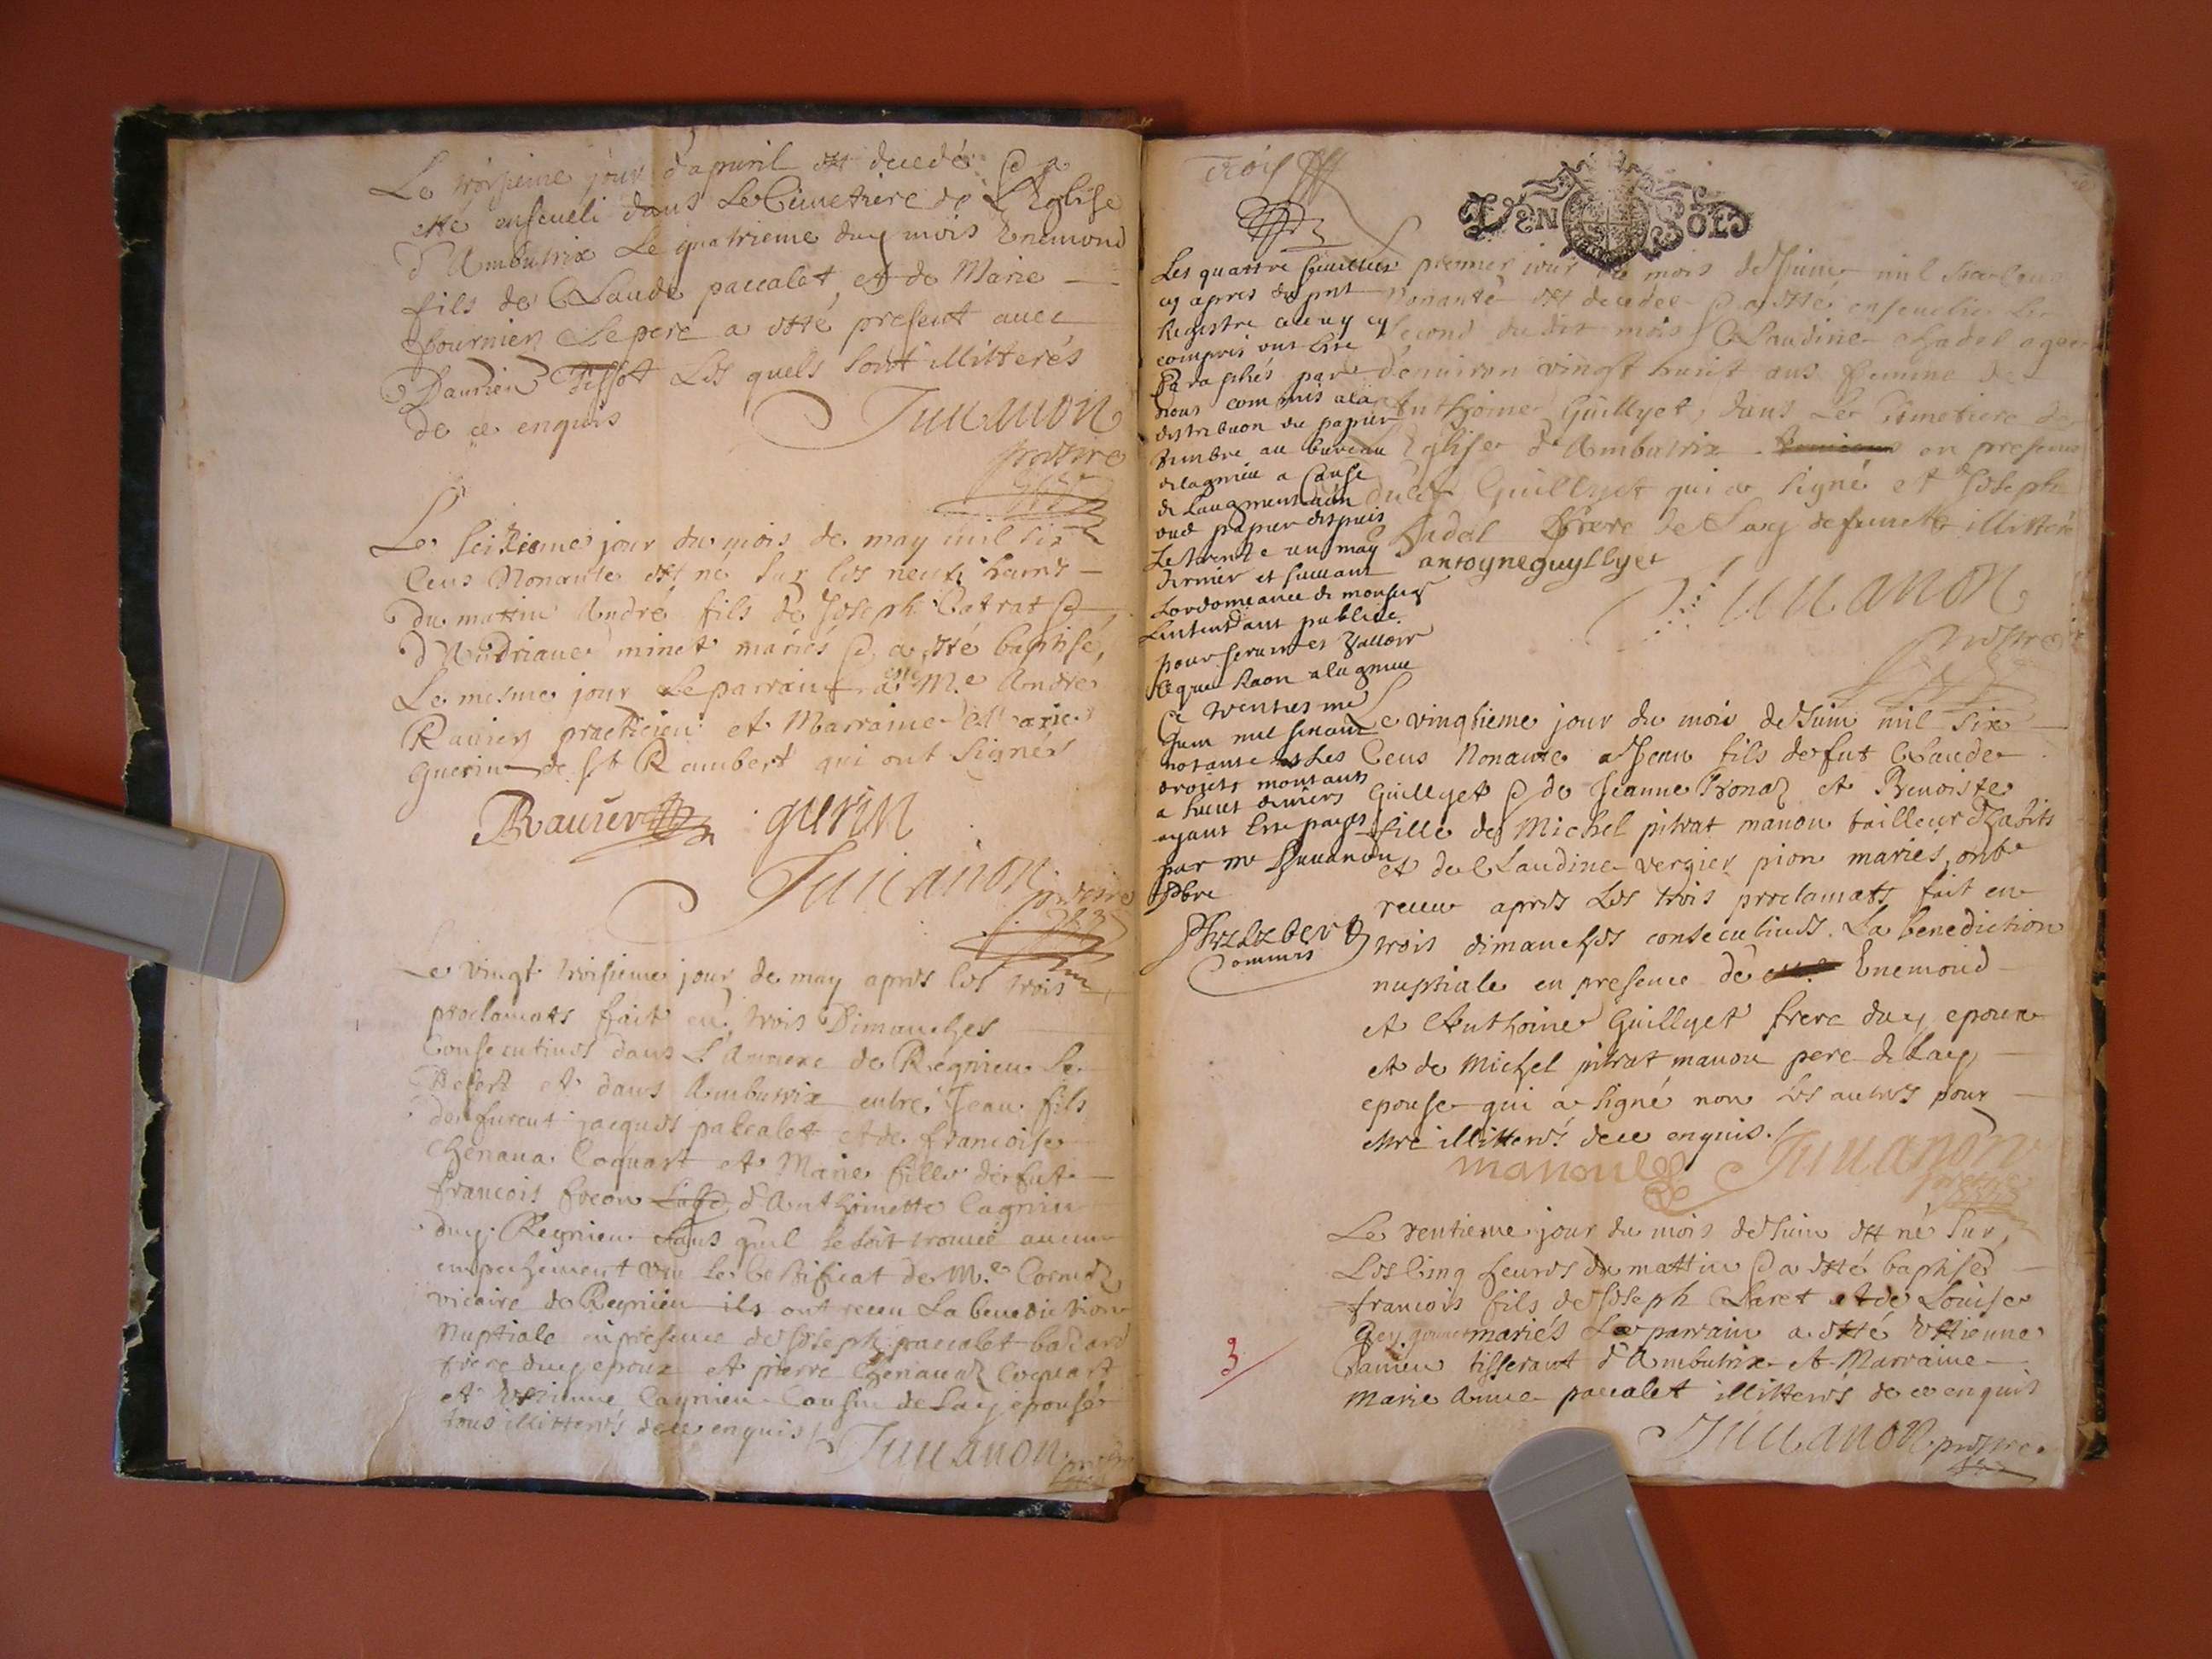 Le troisieme jour d'apuril est decedé & a
esté enseueli dans Le Cimetiere de L'Eglise
d'Ambutrix Le quatrieme duy mois Enemond
fils de Claude paccalet et de Marie
fournier Le pere a esté present auec
Daurier Tissot Les quels sont illitterés
de ce enquis
Juuanon
prestre
Le seizieme jour du mois de may mil six
Cens Nonante est né sur les neuf heures
du mattin André fils de Joseph Catrat &
d'Andriane minet mariés & a esté baptisé,
Le mesme jour Le parrain a esté M.e Andre
Rauier practicien et Marraine Marie
Guerin de st Rambert qui ont signés
Rauier guerin
Juuanon prestre
Le vingt troisieme jour de may apres les trois
proclamats fait en trois Dimanches
Consecutiues dans L'Annexe de Regnieu Le
Desert et dans Ambutrix entre Jean fils
de furent jacques paccalet et de francoise
Chenaua Coquart et Marie fille de fut
francois freon d'Anthoinette Cagnin
duy Regnieu sans qu'il se soit trouué aucun
empechement veu Le Certificat de M.e
vicaire de Regnieu ils ont receu La benediction
Nuptiale en presence de Joseph paccalet
frere duy epoux et pierre Chenaua Coquart
et Estienne Cagnieu Cousin de Lay epouse
tous illitterés de ce enquis
Juuanon prestre
Trois
DEN SOLS
Les quattre feuillets
cy apres du pnt
Registre celuy cy
compris ont Este
Paraphés par
nous commis a la
distribuon du papier
timbre au bureau
de lagnieu a Cause
de Laugmentaon
dud papier despuis
Le trente un may
dernier et suiuant
Lordonnance de monseigr
Lintendant publiée
pour seruir et Valloir
ce que Raon a lagnieu
Ce trentiesme
Juin mil sixcent
nonante Les
droits montants
a huict deniers
ayant Este payes
par mr Juuanon
pbre
Philibert
Commis
Le premier iour du mois de Juin mil six Cens
Nonante est decedée & a esté enseuelie Le
second du dit mois Claudine chadel agee
d'enuiron vingt huit ans femme de
Anthoine Guillyet, dans Le Cimetiere de
L'Eglise d'Ambutrix en presence
dudit Guillyet qui a signé et Joseph
Chadel frere de Lay defuncte illitteré
antoyneguyllyet
Juuanon
prestre
Le vingtieme jour du mois de Juin mil six
Cens Nonante Jean fils de fut Claude
Guillyet & de Jeanne Tronaz et Benoiste
fille de Michel pitrat manou tailleur d'habits
et de Claudine vergier pion mariés, ont
receu apres Les trois proclamats fait en
trois dimanches consecutiues. La benediction
nuptiale en presence de Enemond
et Anthoine Guillyet frere duy epoux
et de Michel pitrat manou pere de Lay
epouse qui a signé non Les autres pour
estre illitterés de ce enquis.
manou Juuanon
prestre
Le trentieme jour du mois de Juin est né sur
Les Cinq heures du mattin & a esté baptisé
francois fils de Joseph Claret et de Louise
mariés Le parrain a esté Estienne
Danieu tisserant d'Ambutrix et Marraine
Marie Anne paccalet illitterés de ce enquis
Juuanon prestre
3